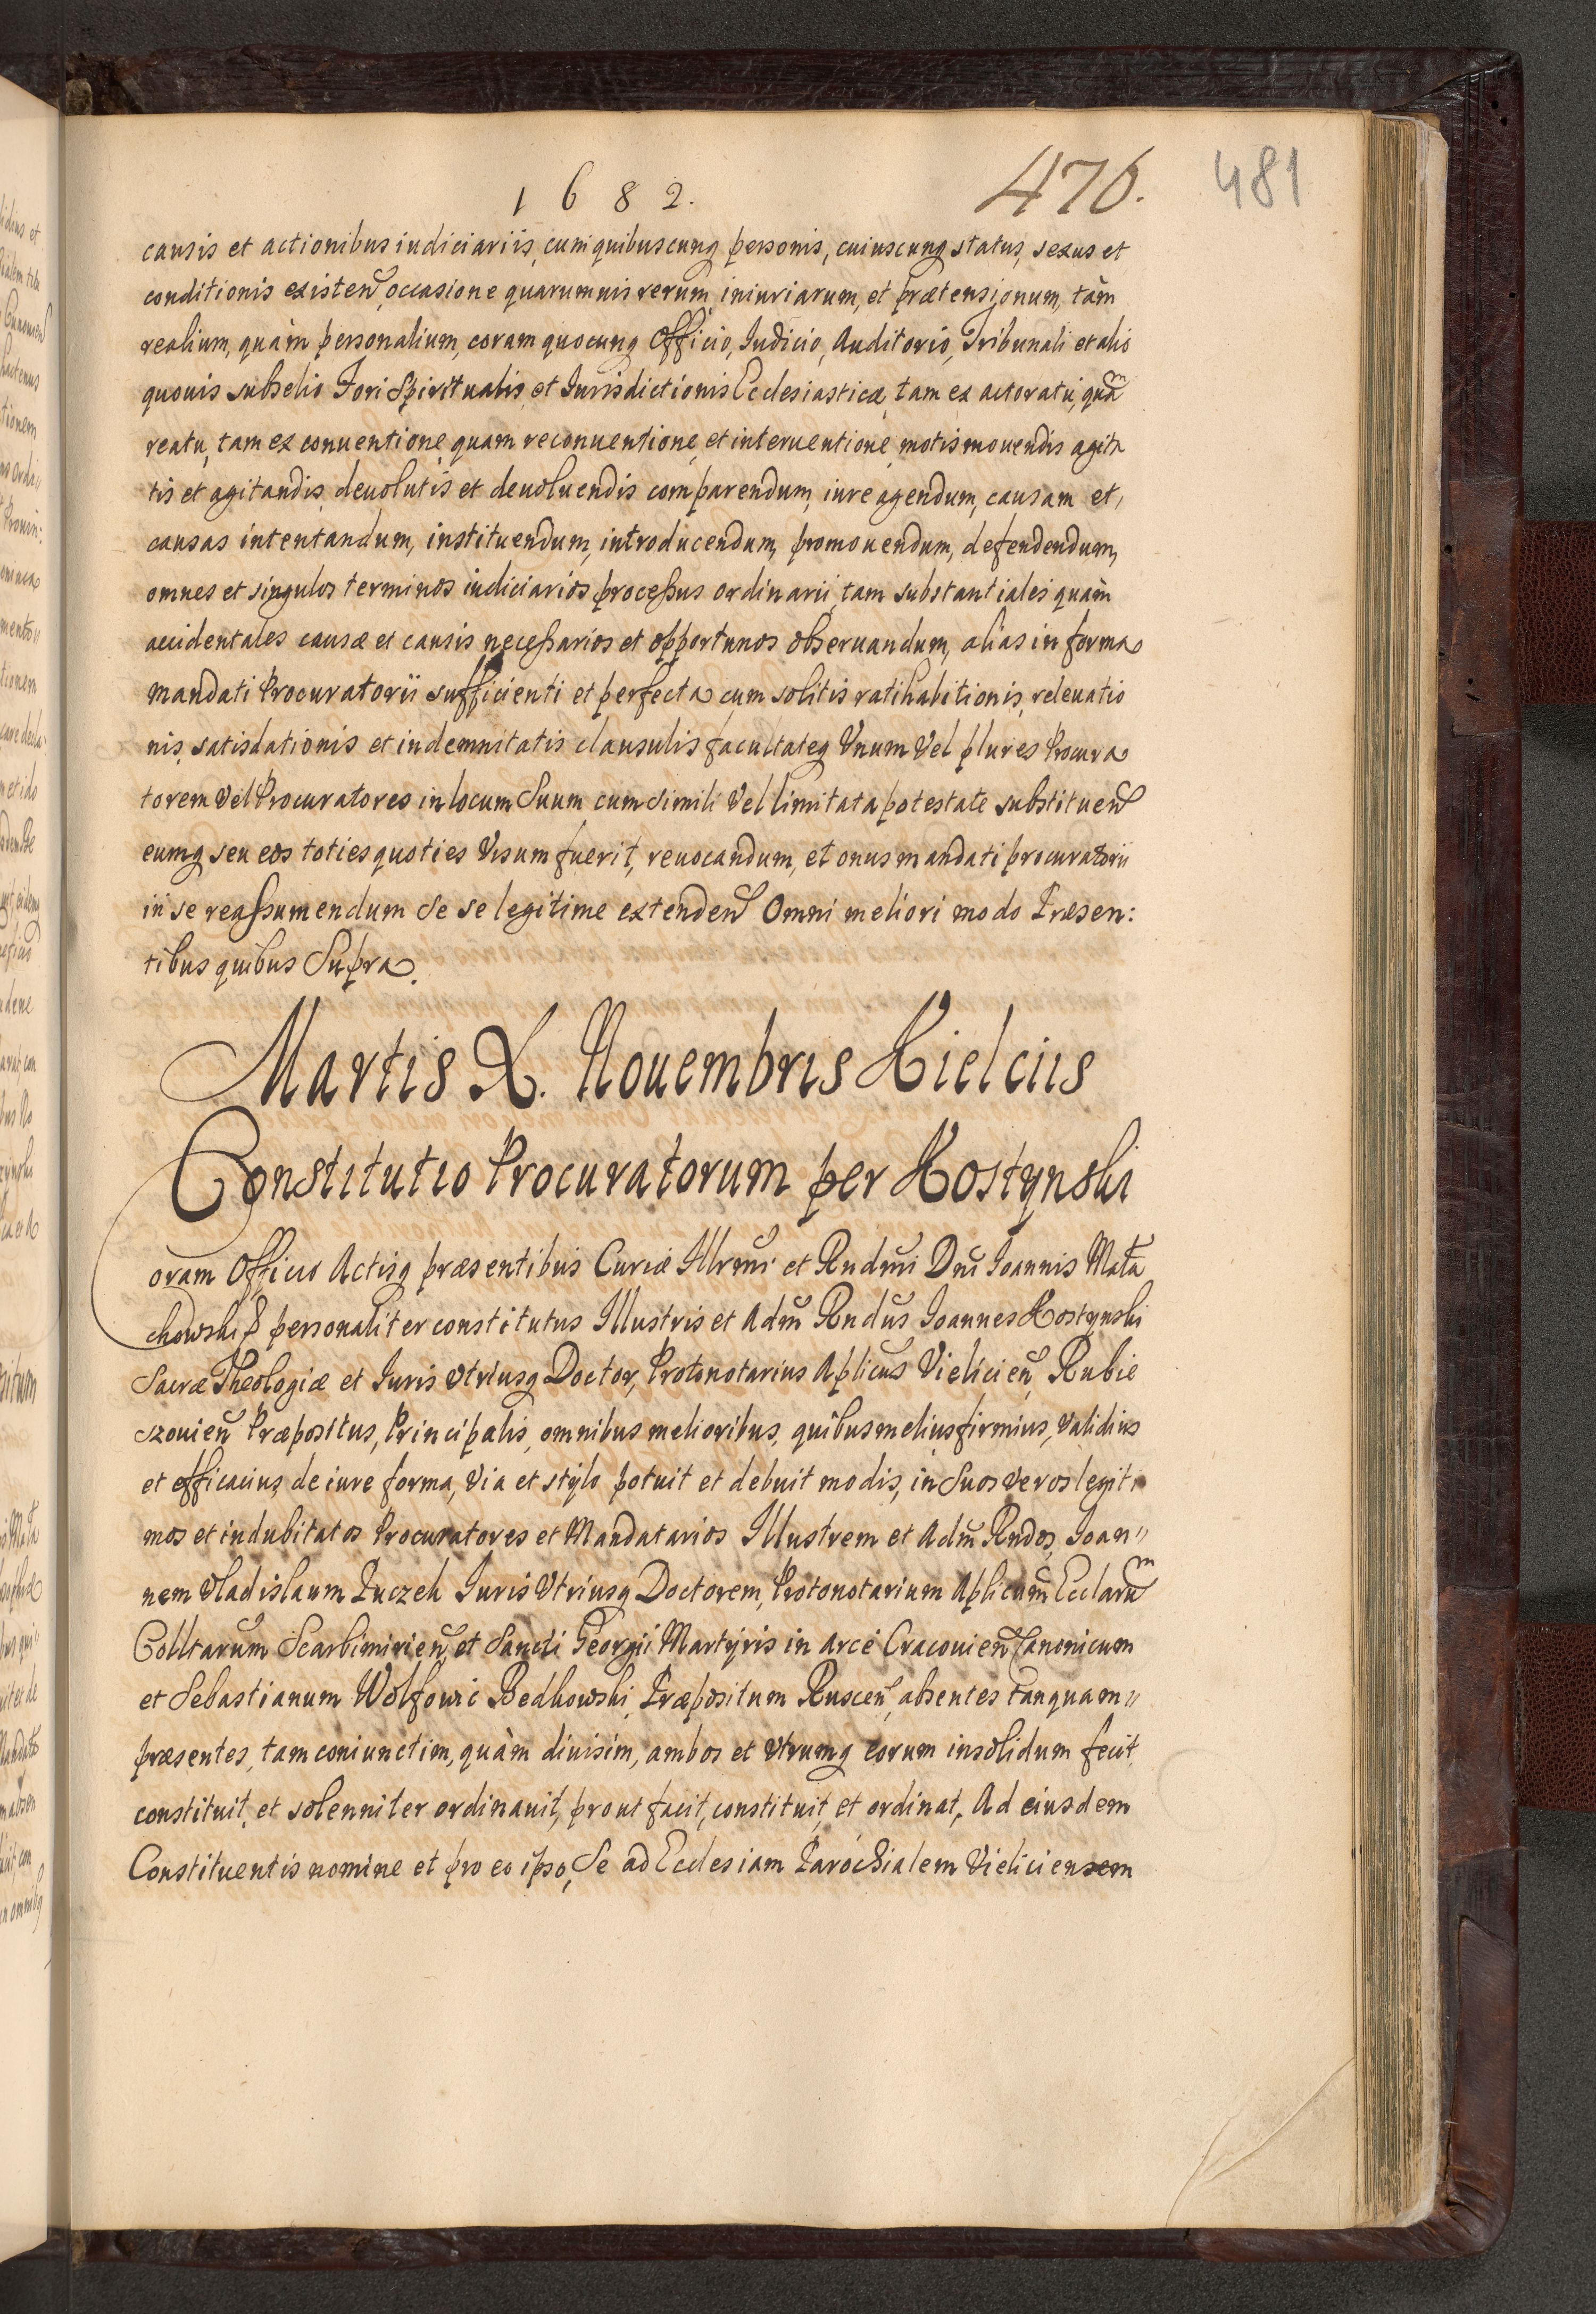 1682.
476.
481
causis et actionibus iudiciariis, cum quibuscunq personis, cuiuscunq status, sexus et
conditionis existen̄, occasione quarumuis rerum, iniuriarum, et prætensionum, tàm
realium, quàm personalium, coram quocunq Officio, Iudicio, Auditorio, Tribunali et alio
quouis subselio Fori Spiritualis, et Iurisdictionis Ecclesiasticæ, tam ex actoratu, quã
reatu, tam ex conuentione, quam reconuentione, et interuentione, motis mouendis agita
tis et agitandis, deuolutis et deuoluendis comparendum, iure agendum, causam et,
causas intentandum, instituendum, introducendum, promouendum, defendendum,
omnes et singulos terminos iudiciarios processus ordinarii, tam substantiales quàm
accidentales causæ et causis necessarios et opportunos obseruandum, alias in forma
mandati Procuratorii sufficienti et perfecta cum solitis ratihabitionis, releuatio
nis, satisdationis et indemnitatis clausulis facultateq Vnum Vel plures Procura
torem Vel Procuratores in locum Suum cum Simili Vel limitata potestate substituen̄
eumq seu eos toties quoties Visum fuerit, reuocandum, et onus mandati procuratorii
in se reassumendum Se se legitime extenden̄ Omni meliori modo Præsen:
tibus quibus Supra.
Martis X. Nouembris Kielciis
Constitutio Procuratorum per Kostynski
oram Officio Actisq præsentibus Curiæ Illrmi et Rndmi Dni Ioannis Mała
chowski personaliter constitutus Illustris et Adm̃ Rndus Ioannes Kostynski
Sacræ Theologiæ et Iuris Vtriusq Doctor, Protonotarius Aplicus Vielicien̄, Rubie
szouien̄ Præpositus, Principalis, omnibus melioribus, quibus melius firmius, Validius
et efficacius, de iure forma, Via et stÿlo potuit et debuit modis, in Suos Veros legiti
mos et indubitatos Procuratores et Mandatarios Illustrem et Adm̃ Rndos, Ioan"
nem Vladislaum Łuczek Iuris Vtriusq Doctorem, Protonotarium Aplicum Ecclarũ
Colltarum Scarbimirien̄, et Sancti Georgii Martÿris in arce Cracouien̄ Canonicum
et Sebastianum Wolfowic Bedkowski, Præpositum Ruscen̄, absentes tanquam"
præsentes, tam coniunctim, quàm diuisim, ambos et Vtrumq eorum insolidum fecit,
constituit, et solenniter ordinauit, prout facit, constituit, et ordinat, Ad eiusdem
Constituentis nomine et pro eo ipso, Se ad Ecclesiam Parochialem Vieliciensem